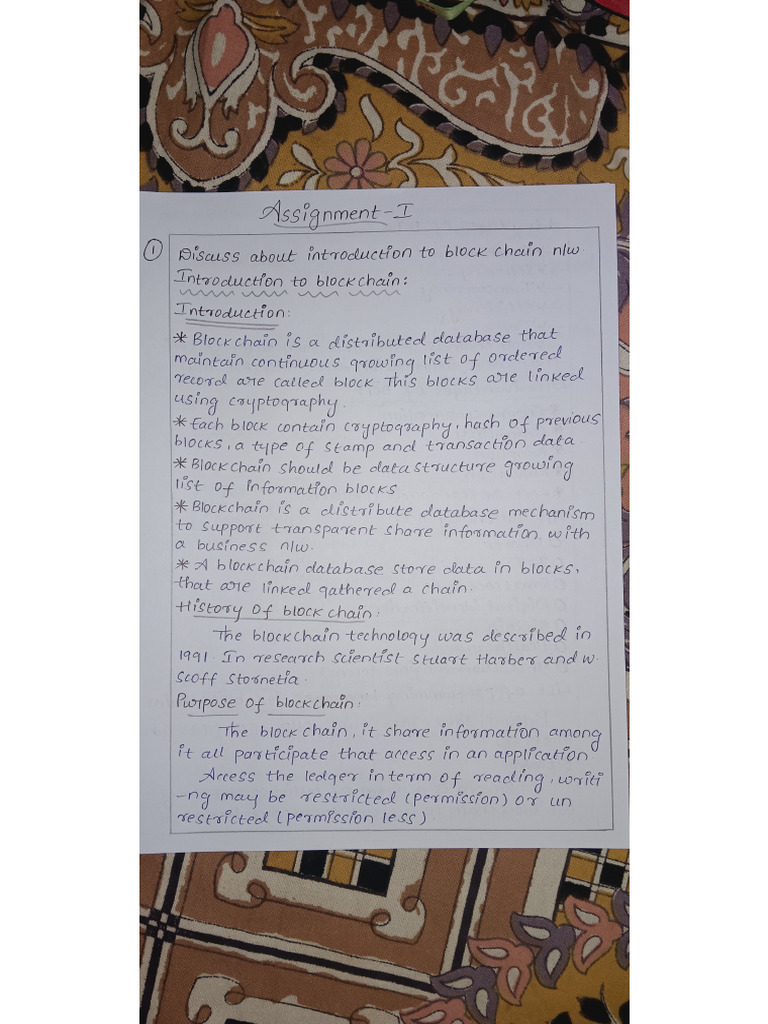 Assignment-I
① Discuss about introduction to block chain n/w.
Introduction to blockchain:
Introduction:
* Blockchain is a distributed database that
maintain continuous growing list of ordered
record are called block. This blocks are linked
using cryptography.
* Each block contain cryptography, hash of previous
blocks, a type of stamp and transaction data.
* Blockchain should be data structure growing
list of information blocks
* Blockchain is a distribute database mechanism
to support transparent share information with
a business n/w.
* A blockchain database store data in blocks,
that are linked gathered a chain.
History of block chain:
The blockchain technology was described in
1991. In research scientist Stuart Harber and W.
Scoff Stornetia.
Purpose of blockchain:
The block chain, it share information among
it all participate that access in an application
Access the ledger interm of reading, writi
-ng may be restricted (permission) or un
restricted (permission less)